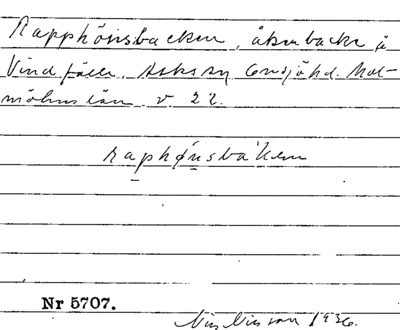 Rapphönsbacken, åkerbacke å
Vindfälle, Asks sn Onsjö hd. Mal-
möhus län v. 22.
raphønsba'ken
Nr 5707.
Nils Nilsson 1926.